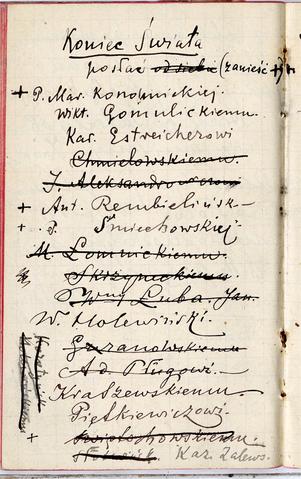 Koniec Świata
posłać od siebie (zanieść +)
+ P. Mar. Konopnickiej.
Wikt. Gomulickiemu.
Kar. Estreicherowi
Chmielowskiemu.
J. Aleksandrowiczowi
+ Ant. Rembieliński
+ . P. Śmiechowskiej.
M. Łomnickiemu.
Skrzynickiemu.
Luba. Jan.
W. Holewiński.
Ad. Pługowi.
Kraszewskiemu.
Piętkiewiczowi.
+ Świętochowskiemu.
Kaz. Zalews.